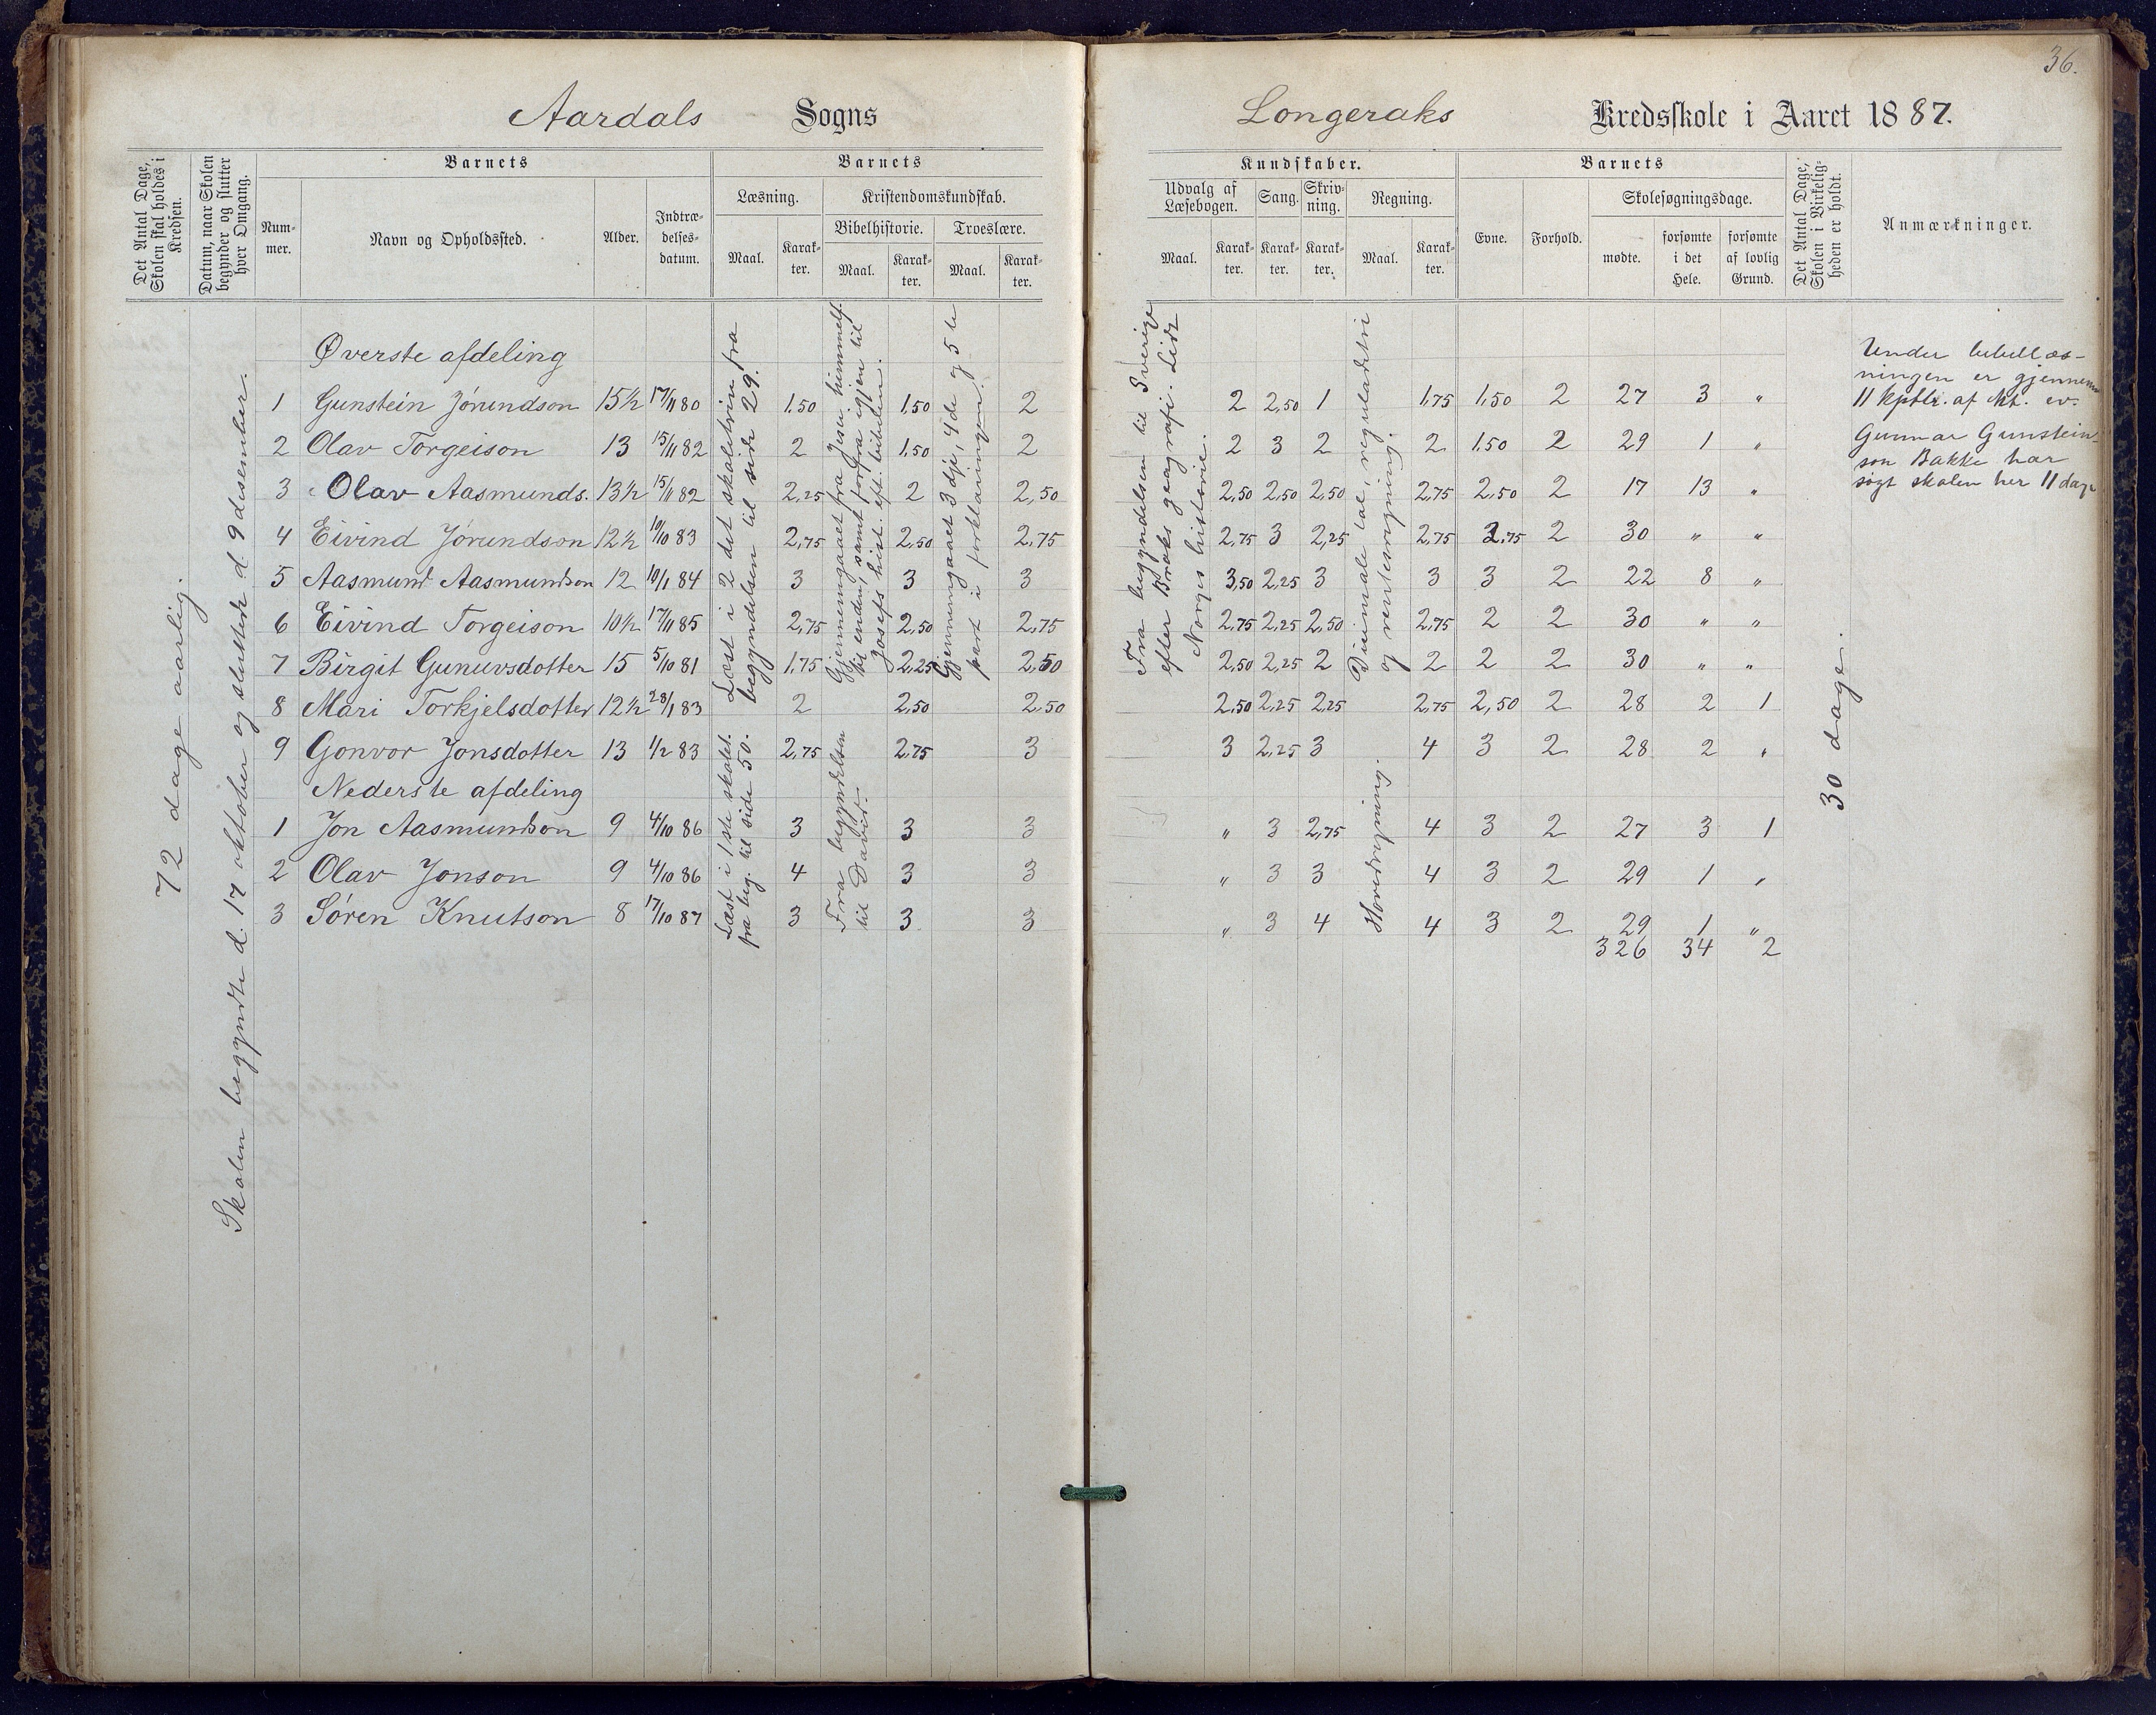 36.
Aardals Sogns Longeraks Kredsskole i Aaret 1887.
Det Antal Dage, Skolen skal holdes i Kredsen.
Datum, naar Skolen begynder og slutter hver Omgang.
Barnets
Nummer.
Navn og Opholdssted.
Alder.
Indtrædelsesdatum.
Barnets
Læsning.
Maal.
Karakter.
Kristendomskundskab.
Bibelhistorie.
Maal.
Karakter.
Troeslære.
Maal.
Karakter.
Kundskaber.
Udvalg af Læsebogen.
Maal.
Karakter.
Sang.
Karakter.
Skrivning.
Karakter.
Regning.
Maal.
Karakter.
Barnets
Evne.
Forhold.
Skolesøgningsdage.
mødte.
forsømte i det Hele.
forsømte af lovlig Grund.
Det Antal Dage, Skolen i Virkeligheden er holdt.
Anmærkninger.
72 dage aarlig.
Skolen begyndte d. 17 oktober og sluttede d. 9 desember.
Øverste afdeling
1 Gunstein Jørundson 15½ 17/11 80 1,50 1,50 2 2 2,50 1 1,75 1,50 2 27 3 "
2 Olav Torgeison 13 15/11 82 2 1,50 2 2 3 2 2 1,50 2 29 1 "
3 Olav Aasmunds. 13½ 15/11 82 2,25 2 2,50 2,50 2,50 2,50 2,75 2,50 2 17 13 "
4 Eivind Jørundson 12½ 10/10 83 2,75 2,50 2,75 2,75 3 2,25 2,75 2,75 2 30 " "
5 Aasmund Aasmundson 12 10/1 84 3 3 3 3,50 2,25 3 3 3 2 22 8 "
6 Eivind Torgeison 10½ 17/11 85 2,75 2,50 2,75 2,75 2,25 2,50 2,75 2 2 30 " "
7 Birgit Gunuvsdotter 15 5/10 81 1,75 2,25 2,50 2,50 2,25 2 2 2 2 30 " "
8 Mari Torkjelsdotter 12½ 28/1 83 2 2,50 2,50 2,50 2,25 2,25 2,75 2,50 2 28 2 1
9 Gonvor Jonsdotter 13 1/2 83 2,75 2,75 3 3 2,25 3 4 3 2 28 2 "
Nederste afdeling
1 Jon Aasmundson 9 4/10 86 3 3 3 " 3 2,75 4 3 2 27 3 1
2 Olav Jonson 9 4/10 86 4 3 3 " 3 3 4 3 2 29 1 "
3 Søren Knutson 8 17/10 87 3 3 3 " 3 4 4 3 2 29 1 "
326 34 2
Læst i 2 det skoletrin fra
begyndelsen til side 29.
Læst i 1ste skolet.
fra beg. til side 50.
Gjennemgaaet fra Jesu himmelf.
til enden, samt forfra igjen til
Josefs hist. eft. bibelen.
Fra begyndelsen
til David.
Gjennemgaaet 3dje, 4de og 5te
part i forklaringen.
Fra begyndelsen til Sverige
efter geografi. Lidt
Norges historie.
Desimale tal, reguladetri
og rentesregning.
Hovedregning.
30 dage.
Under bibellæs-
ningen er gjennem
11 kptlr. af Mt. ev.
Gunnar Gunstein-
son Bakke har
søgt skolen her 11 dage